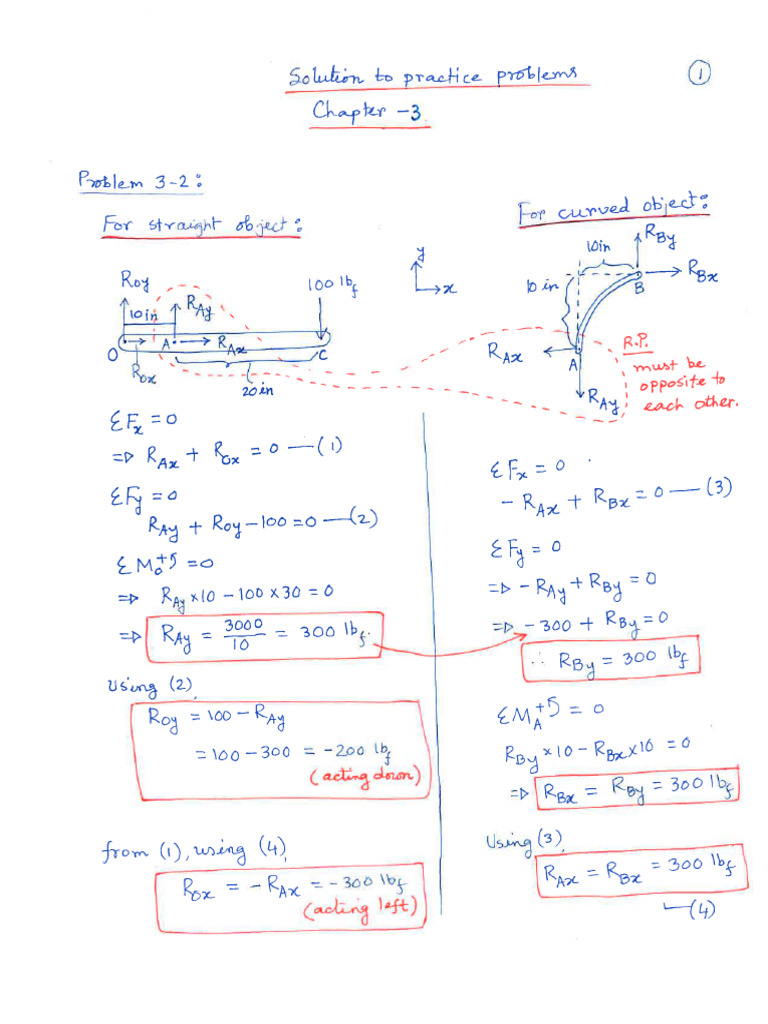 Solution to practice problems
①
Chapter -3
Problem 3-2:
For straight object:
R_Oy
100 lb_f
10in
R_Ay
O
A
R_Ax
C
R_Ox
20in
y
x
For curved object:
10in
R_By
10in
R_Bx
B
R_Ax
A
R_Ay
R.P.
must be
opposite to
each other.
ΣF_x = 0
⇒ R_Ax + R_Ox = 0 — (1)
ΣF_y = 0
R_Ay + R_Oy − 100 = 0 — (2)
ΣM_O +↺ = 0
⇒ R_Ay × 10 − 100 × 30 = 0
⇒ R_Ay = 3000/10 = 300 lb_f.
Using (2),
R_Oy = 100 − R_Ay
= 100 − 300 = −200 lb_f
(acting down)
from (1), using (4),
R_Ox = −R_Ax = −300 lb_f
(acting left)
ΣF_x = 0
− R_Ax + R_Bx = 0 — (3)
ΣF_y = 0
⇒ −R_Ay + R_By = 0
⇒ −300 + R_By = 0
∴ R_By = 300 lb_f
ΣM_A +↺ = 0
R_By × 10 − R_Bx × 10 = 0
⇒ R_Bx = R_By = 300 lb_f
Using (3),
R_Ax = R_Bx = 300 lb_f
— (4)